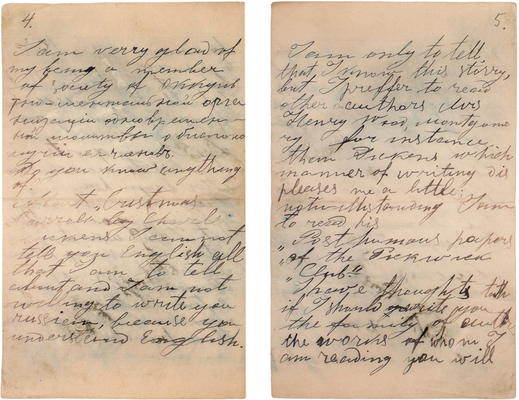 4.
I am verry glad of
my being a member
of society of
организации
Do you know anything
of
Cristmas
by Charl
Dickens I am not
tell you English all
that I am to tell
about and I am not
willing to write you
russian, because you
understand English.
5.
I am only to tell
that I know this storry,
but I preffer to read
other authors Mrs
Henry Wood Montgome
ry for instance
than Dickens which
manner of writing dis
pleases me a little;
notwithstanding I am
to read his
„Posthumous papers
„of the Pickwick
„Club"
I have thought to tell
if I should write you
the family of
the works of whom I
am reading you will